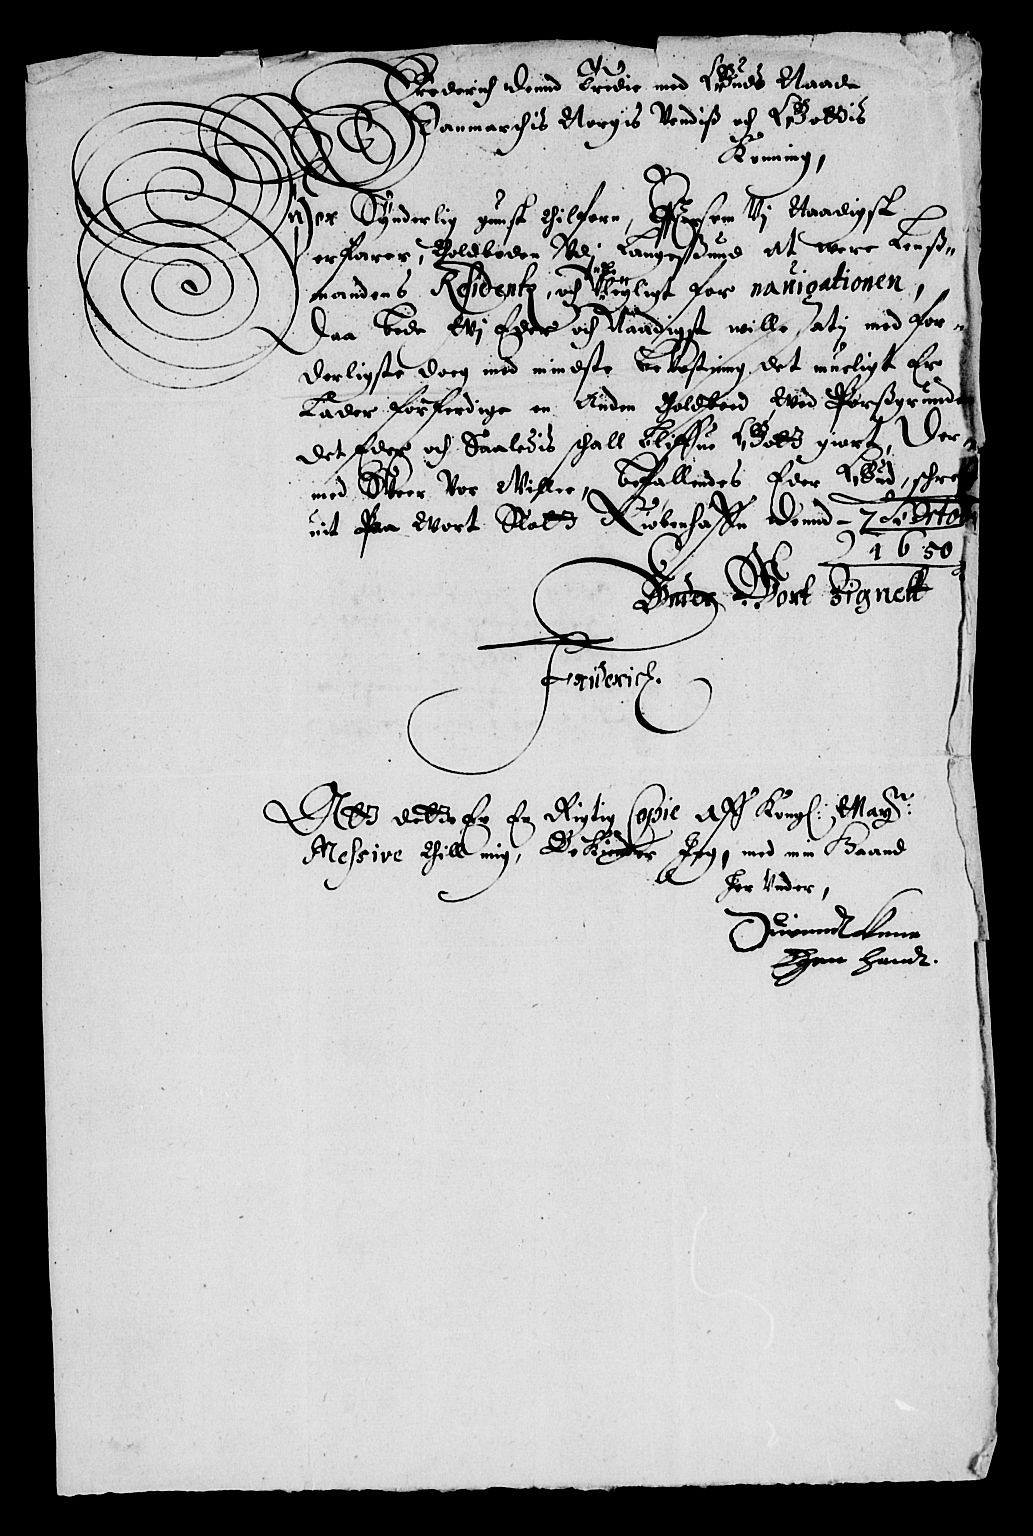 Frederich dennd Tredie med Guds Naade
Danmarchis Norgis Vendis och Gottis
Konning,
Vor Synderlig gunst tilforn, Effterson Vj Naadigst
erfarer, Toldboden Vdj Langesund at were Lenß-
mandens Residentz, och ubeyligt for nauigationen,
Daa bede Wj Eder och Naadigst wille, atj med for-
derligste doeg med mindste Bekostning det mueligt Er
Lader forferdige en Anden Toldboed Wed Porßgrunden
det Eder och Saaledis schall bliffue Gott giort, Der
med Skeer Vor Willie, Befallendes Eder Gud, schre-
uit Paa Wort Slott Kiøbenhaffn dennd 7 Octob
1650
Under Wort Signett
Friderich.
Att dette Er En Rigtig Copie Aff Kongl: May:tz
Messive thill mig, Bekiender Jeg, med min Haand
her Vnder,
Egen handt.